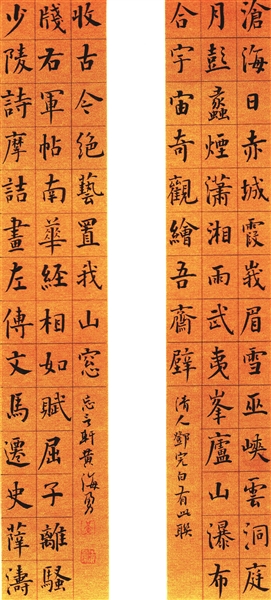 滄海日赤城霞峩眉雪巫峽雲洞庭
月彭蠡煙瀟湘雨武夷峯廬山瀑布
合宇宙奇觀繪吾齋壁
清人鄧完白有此聯
少陵詩摩詰畫左傳文馬遷史薛濤
牋右軍帖南華經相如賦屈子離騷
收古今絕藝置我山窓
忘言軒黄海勇